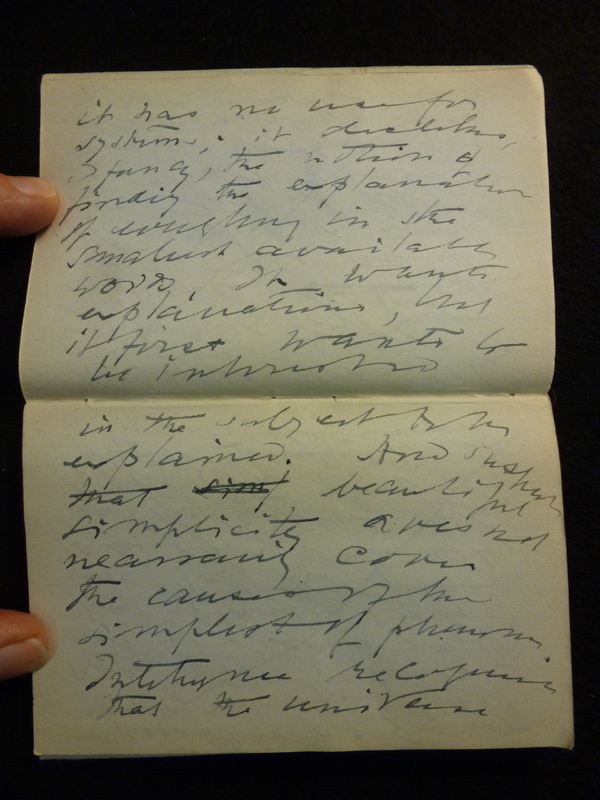 it has no use for
systems; it dislikes,
I fancy, the notion of
finding the explanation
of everything in the
smallest available
word. It wants
explanations, but
it first wants to
be interested
in the subject to be
explained. And
that beautiful
simplicity does not
necessarily cover
the causes of the
simplest of phenomena
Intelligence recognises
that the universe